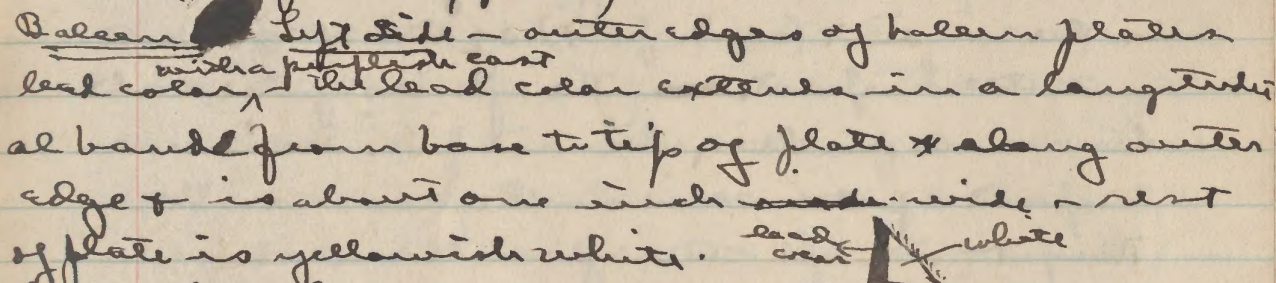 Baleen Left side - outer edges of baleen plates
with a purplish cast
lead color, - the lead color extends in a longitudin
al band from base to tip of plate along outer
edge & is about one inch wide - rest
of plate is yellowish white.
lead color white